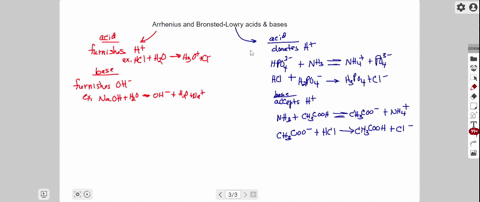 Arrhenius and Bronsted-Lowry acids & bases
acid
furnishes H⁺
ex. HCl + H₂O → H₃O⁺ + Cl⁻
base
furnishes OH⁻
ex. NaOH + H₂O → OH⁻ + H₂O + Na⁺
acid
donates H⁺
HPO₄²⁻ + NH₃ ⇌ NH₄⁺ + PO₄³⁻
HCl + H₂PO₄⁻ → H₃PO₄ + Cl⁻
base
accepts H⁺
NH₃ + CH₃COOH ⇌ CH₃COO⁻ + NH₄⁺
CH₃COO⁻ + HCl → CH₃COOH + Cl⁻
3/3